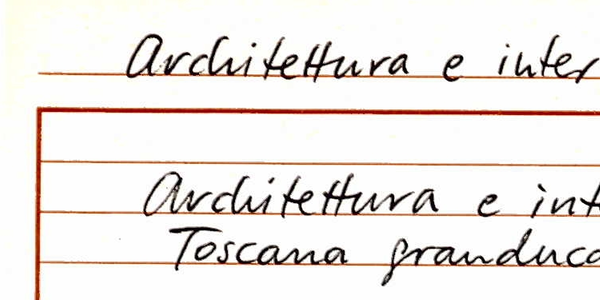 Architettura e inter
Architettura e int
Toscana granduc